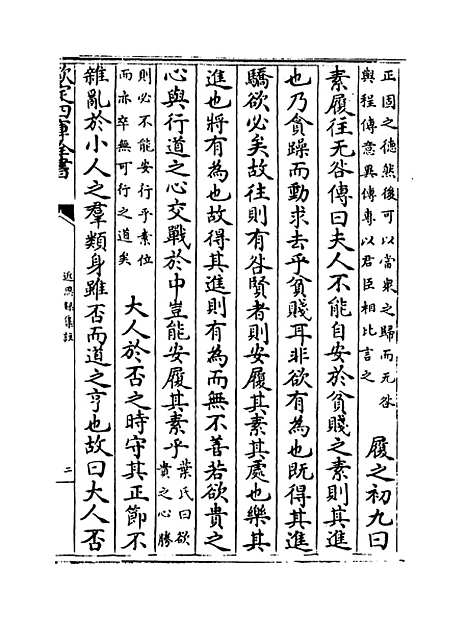 正固之德然後可以當衆之歸而无咎
與程傳意異傳專以君臣相比言之
履之初九曰
素履往无咎傳曰夫人不能自安於貧賤之素則其進
也乃貪躁而動求去乎貧賤耳非欲有為也既得其進
驕欲必矣故往則有咎賢者則安履其素其處也樂其
進也將有為也故得其進則有為而無不善若欲貴之
心與行道之心交戰於中豈能安履其素乎
葉氏曰欲
貴之心勝
則必不能安行乎素位
而亦卒無可行之道矣
大人於否之時守其正節不
雜亂於小人之羣類身雖否而道之亨也故曰大人否
欽定四庫全書
近思録集註
二